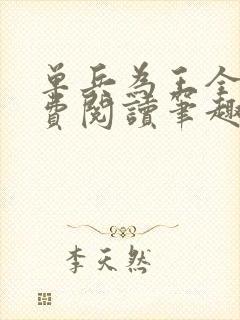 单兵为王全
费阅读笔趣
李天然